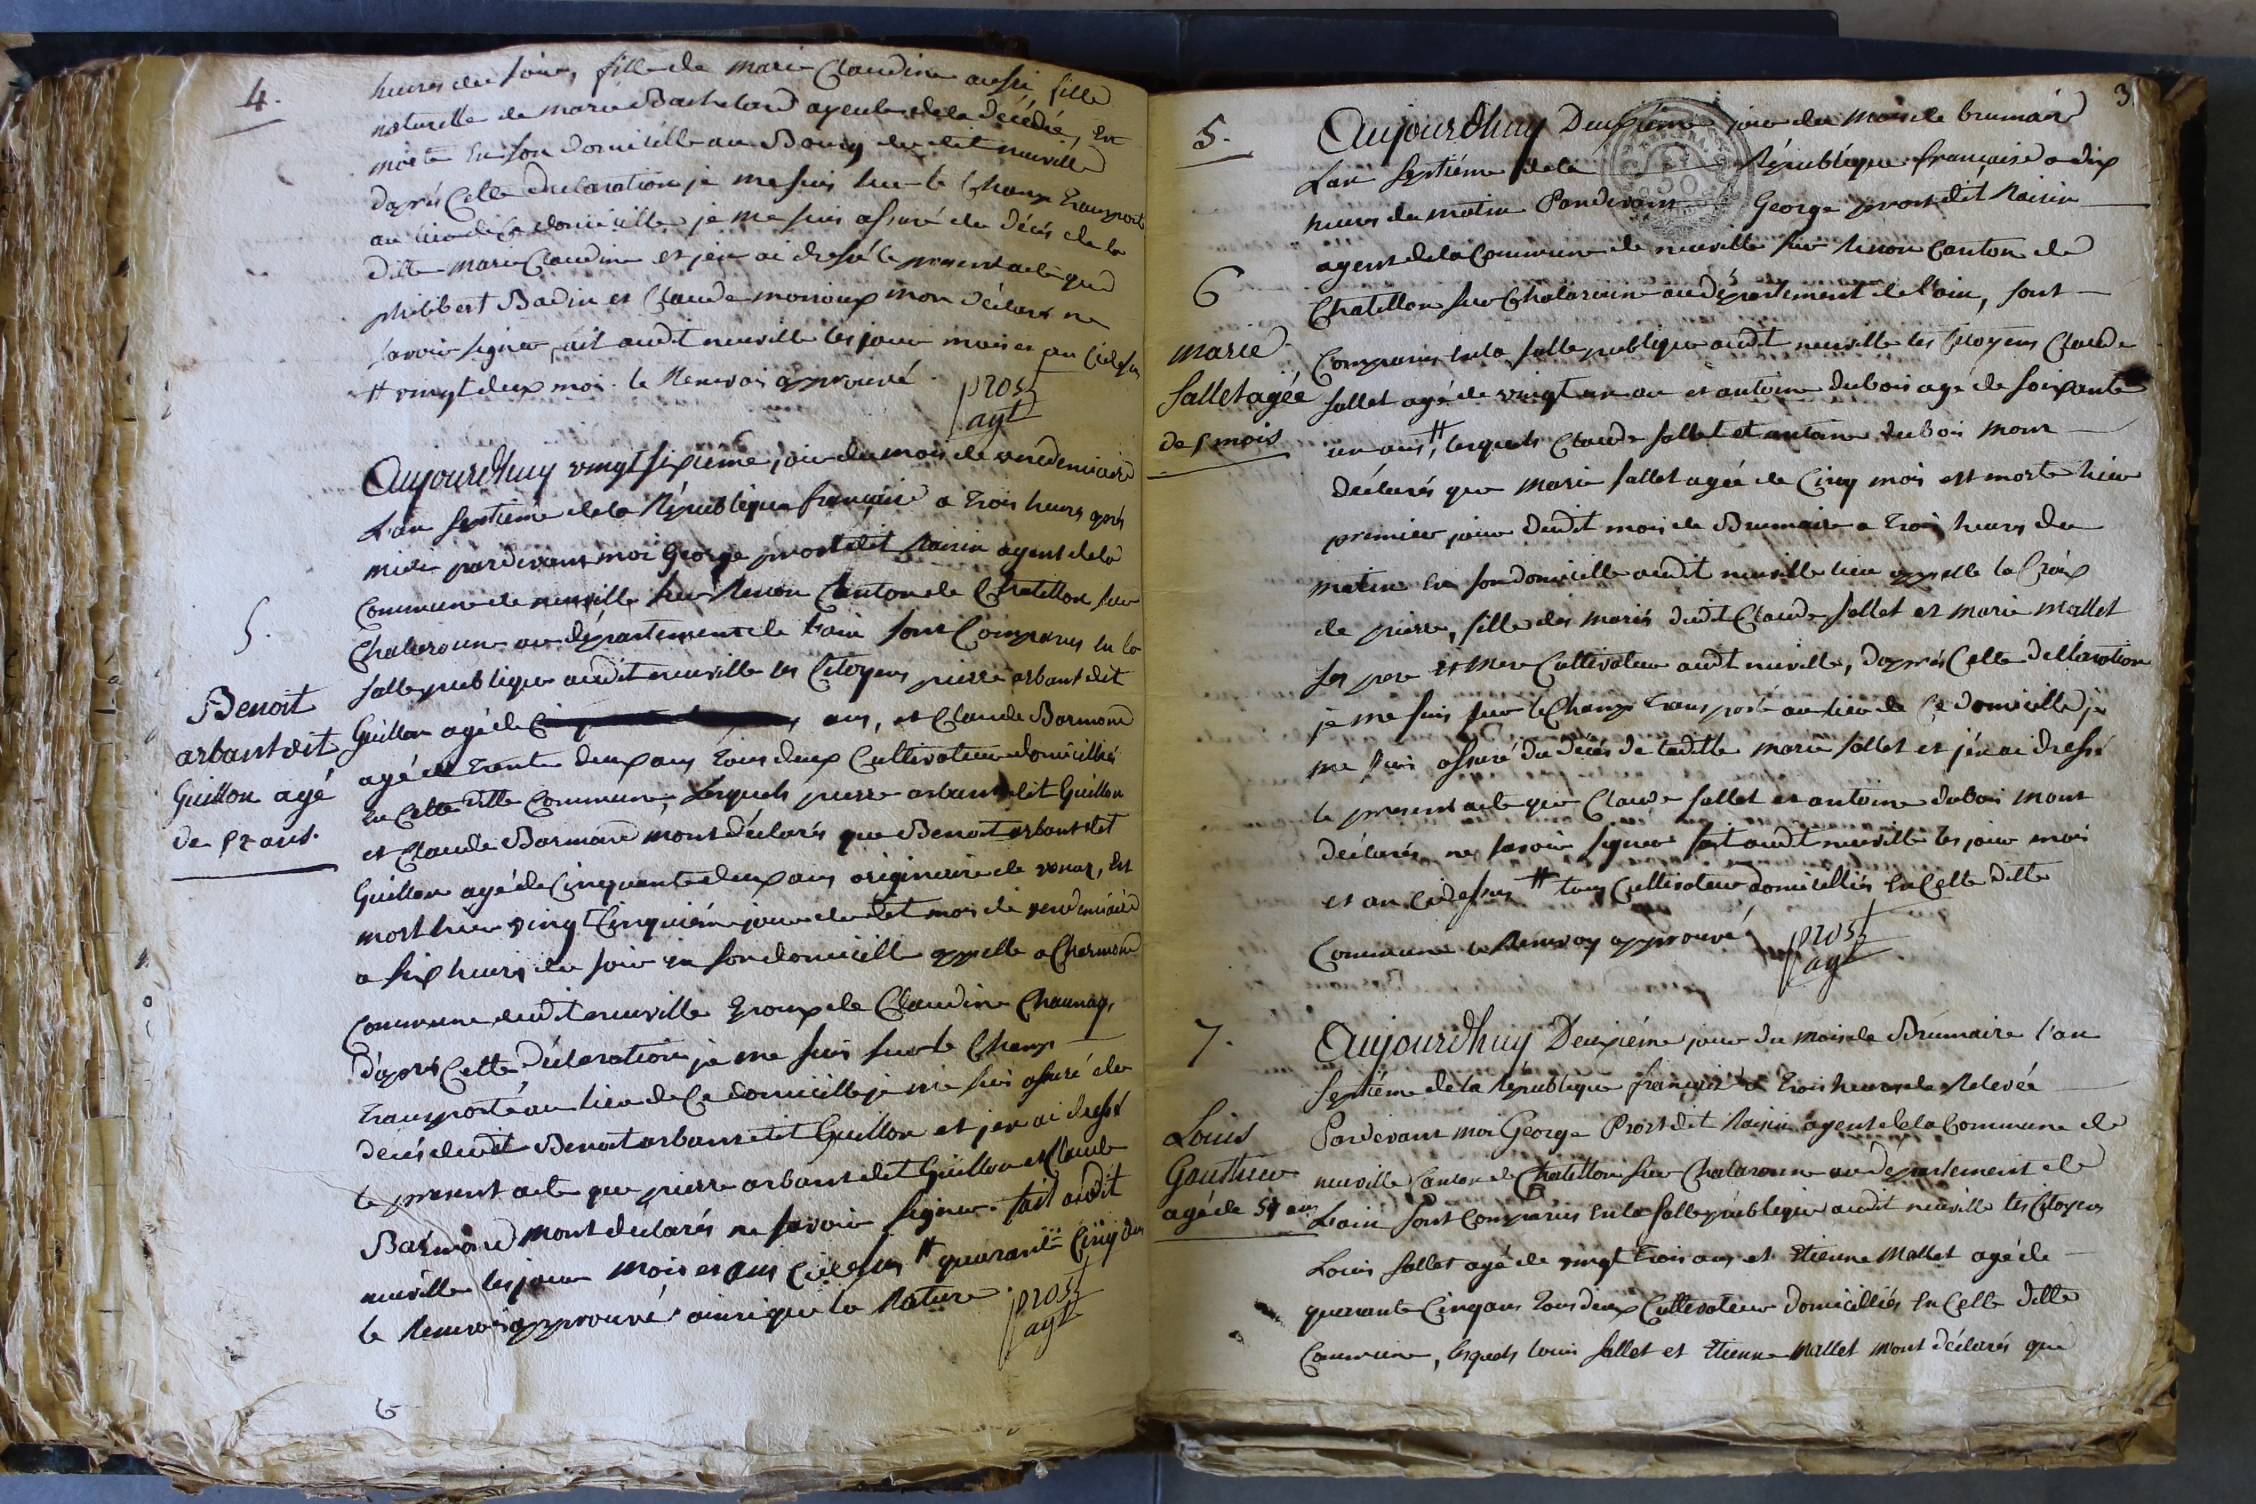 4.
heures du soir, fille de marie Claudine aussi fille
naturelle de marie Bachelard ayeule de la décédée, Est
morte En son domicille au Bourg du dit neuville
daprés Cette declaration je me suis sur le Champ Transporté
au lieu de Ce domicille je me suis assuré du décés de la
ditte marie Claudine et jen ai dressé le present acte que
philibert Badin et Claude monioux mon déclaré ne
savoir signer, fait audit neuville les jour mois et an Cidessus
# vingt deux mois. le Renvoi approuvé
prost
agt
5.
Benoit
arbant dit
Guillon agé
de 52 ans.
Aujourdhuy vingt sixieme jour du mois de vendemiaire
L'an septieme de la République française a Trois heures aprés
midi pardevant moi George prost dit Raisin agent de la
Commune de neuville sur Renon Canton de Chatillon sur
Chalaronne au département de l'ain sont Comparus En la
salle publique audit neuville les Citoyens pierre arbant dit
Guillon agé de ans, et Claude Barmond
agé de Trente deux ans Tous deux Cultivateur domicilliés
En Cette ditte Commune, Lesquels pierre arbant dit Guillon
et Claude Barmond m'ont déclarés que Benoit arbant dit
Guillon agé de Cinquante deux ans originaire de vonas, Est
mort hier vingt Cinquiéme jour du dit mois de vendemiaire
a six heures du soir en son domicille appellé a Chermond
Commune dudit neuville Epoux de Claudine Chaunay,
d'aprés Cette déclaration je me suis sur le Champ
Transporté au lieu de Ce domicille je me suis assuré du
decés dudit Benoit arbant dit Guillon et jen ai dressé
le present acte que pierre arbant dit Guillon et Claude
Barmond mont declarés ne savoir signer. fait audit
neuville les jour mois et ans Cidessus # quarante Cinq ans
le Renvoi approuvé ainsi que la Rature.
prost
agt
3
5.
6
marie
sallet agée
de 5 mois
Aujourdhuy Deuxiéme jour du mois de brumaire
L'an septiéme de la République française a dix
heures du matin Pardevant George prost dit Raisin
agent de la Commune de neuville sur Renon Canton de
Chatillon sur Chalaronne au département de l'ain, sont
Comparus En la salle publique audit neuville les Citoyens Claude
sallet agé de vingt un an et antoine dubois agé de soixante
un ans, # lesquels Claude sallet et antoine dubois mont
déclarés que marie sallet agée de Cinq mois est morte hier
premier jour dudit mois de Brumaire a Trois heures du
matin En son domicille audit neuville lieu appellé la Croix
de pierre, fille des mariés dudit Claude sallet et marie mallet
ses pere et mere Cultivateur audit neuville, daprés Cette déclaration
je me suis sur le Champ Transporté au lieu de Ce domicille je
me suis assuré du décés de ladite marie sallet et jén ai dressé
le present acte que Claude sallet et antoine dubois mont
déclarés ne savoir signer fait audit neuville les jour mois
et an Cidessus # tous Cultivateur domicilliés En Cette ditte
Commune le Renvoy approuvé
prost
agt
7.
Louis
Gauthier
agé de 54 ans
Aujourdhuy Deuxiéme jour du mois de Brumaire l'an
septiéme de la République française a Trois heures de Relevée
Pardevant moi George Prost dit Raisin agent de la Commune de
neuville Canton de Chatillon sur Chalaronne au département de
L'ain sont Comparus En la salle publique audit neuville les Citoyens
Louis sallet agé de vingt Trois ans et Etienne Mallet agé de
quarante Cinq ans Tous deux Cultivateur domicilliés En Cette ditte
Commune, lesquels Louis sallet et Etienne Mallet mont déclarés que